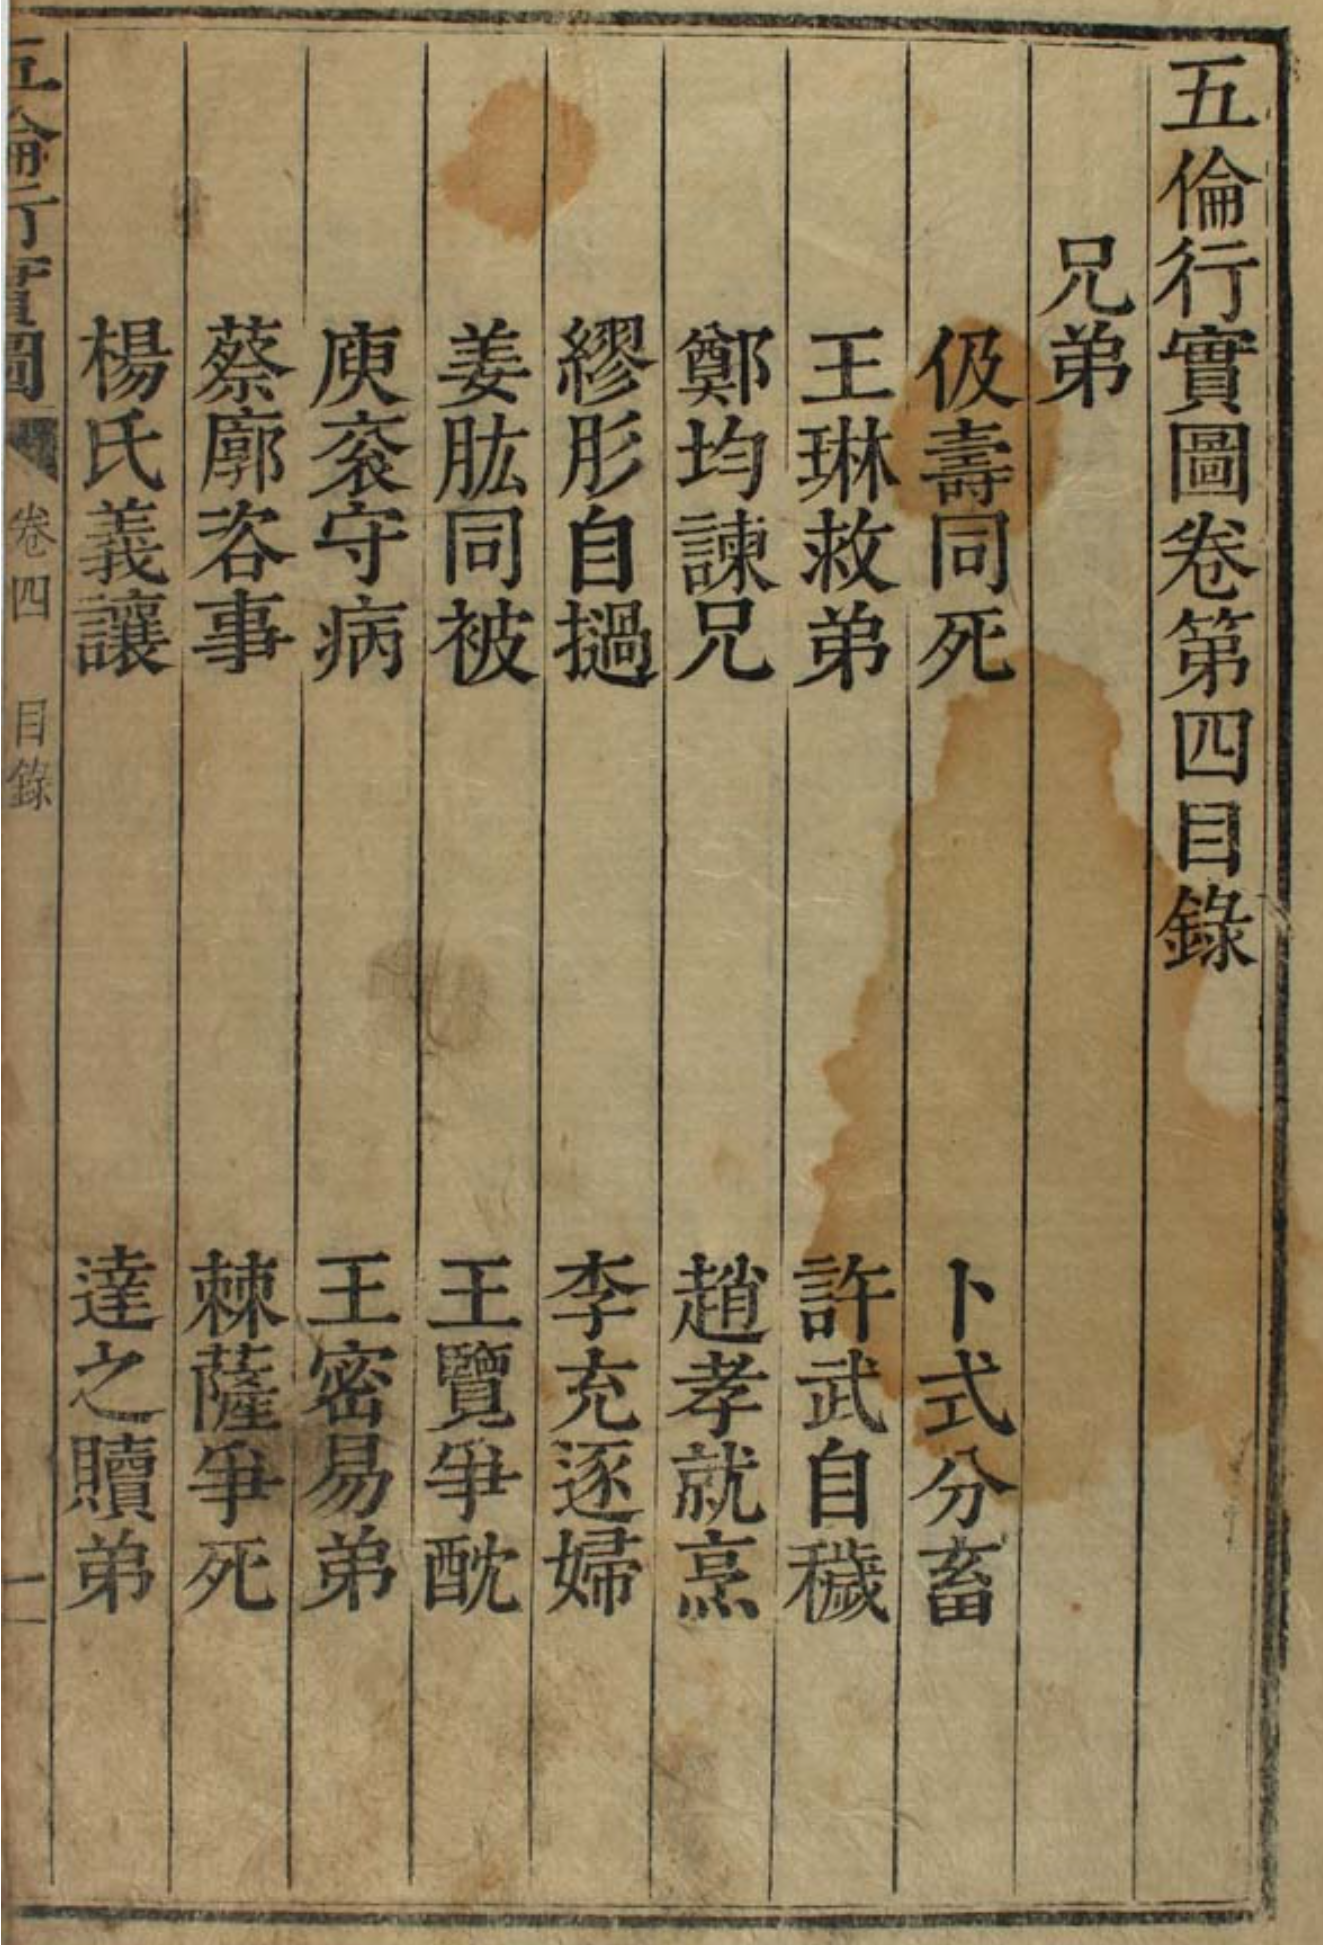 五倫行實圖卷第四目錄
兄弟
伋壽同死 卜式分畜
王琳救弟 許武自穢
鄭均諫兄 趙孝就烹
繆肜自撾 李充逐婦
姜肱同被 王覽爭酖
庾袞守病 王密易弟
蔡廓咨事 棘薩爭死
楊氏義讓 達之贖弟
五倫行實圖 卷四 目錄 一